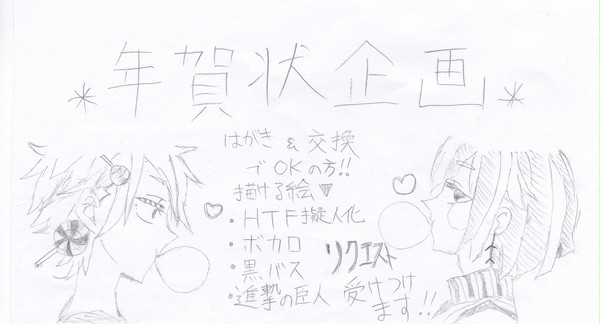 *年賀状企画*
はがき & 交換
でOKの方!!
描ける絵♥
・HTF擬人化
・ボカロ
・黒バス
・進撃の巨人
リクエスト
受けつけ
ます!!